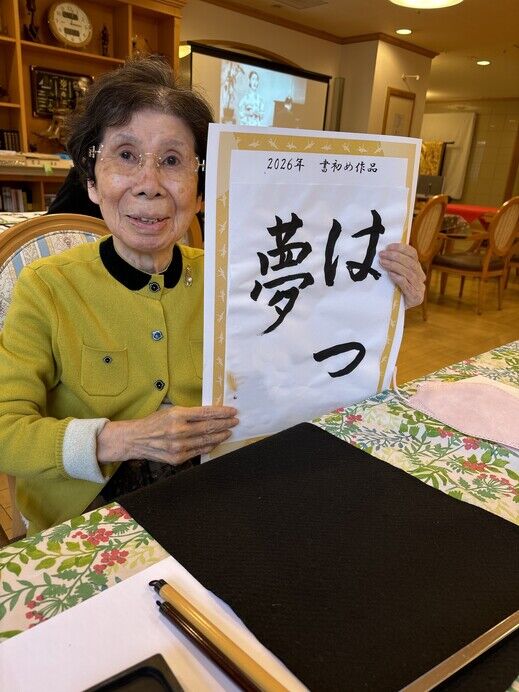 2026年 書初め作品
はつ
夢